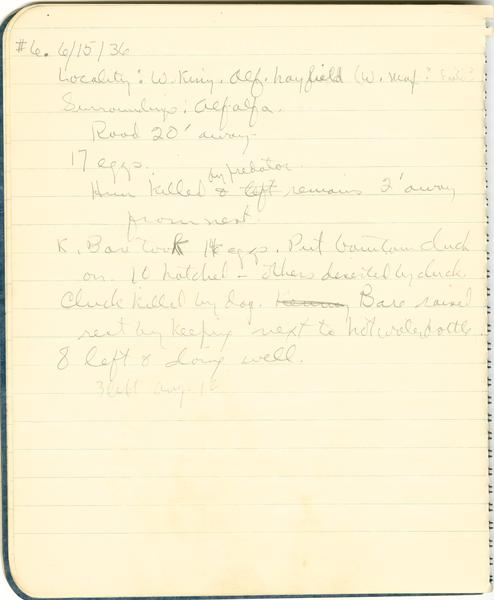 #6. 6/15/36
Locality: W. King. Alf. hayfield (W. Maf:
Surroundings: Alfalfa.
Road 20' away.
17 eggs.
by predator
Hen killed & left remains 2' away
from nest.
K. Bare took 14 eggs. Put bantam cluck
on. 10 hatched - others deserted by cluck.
Cluck killed by dog. Bare raised
rest by keeping next to hot water bottle
8 left & doing well.
3 left Aug.